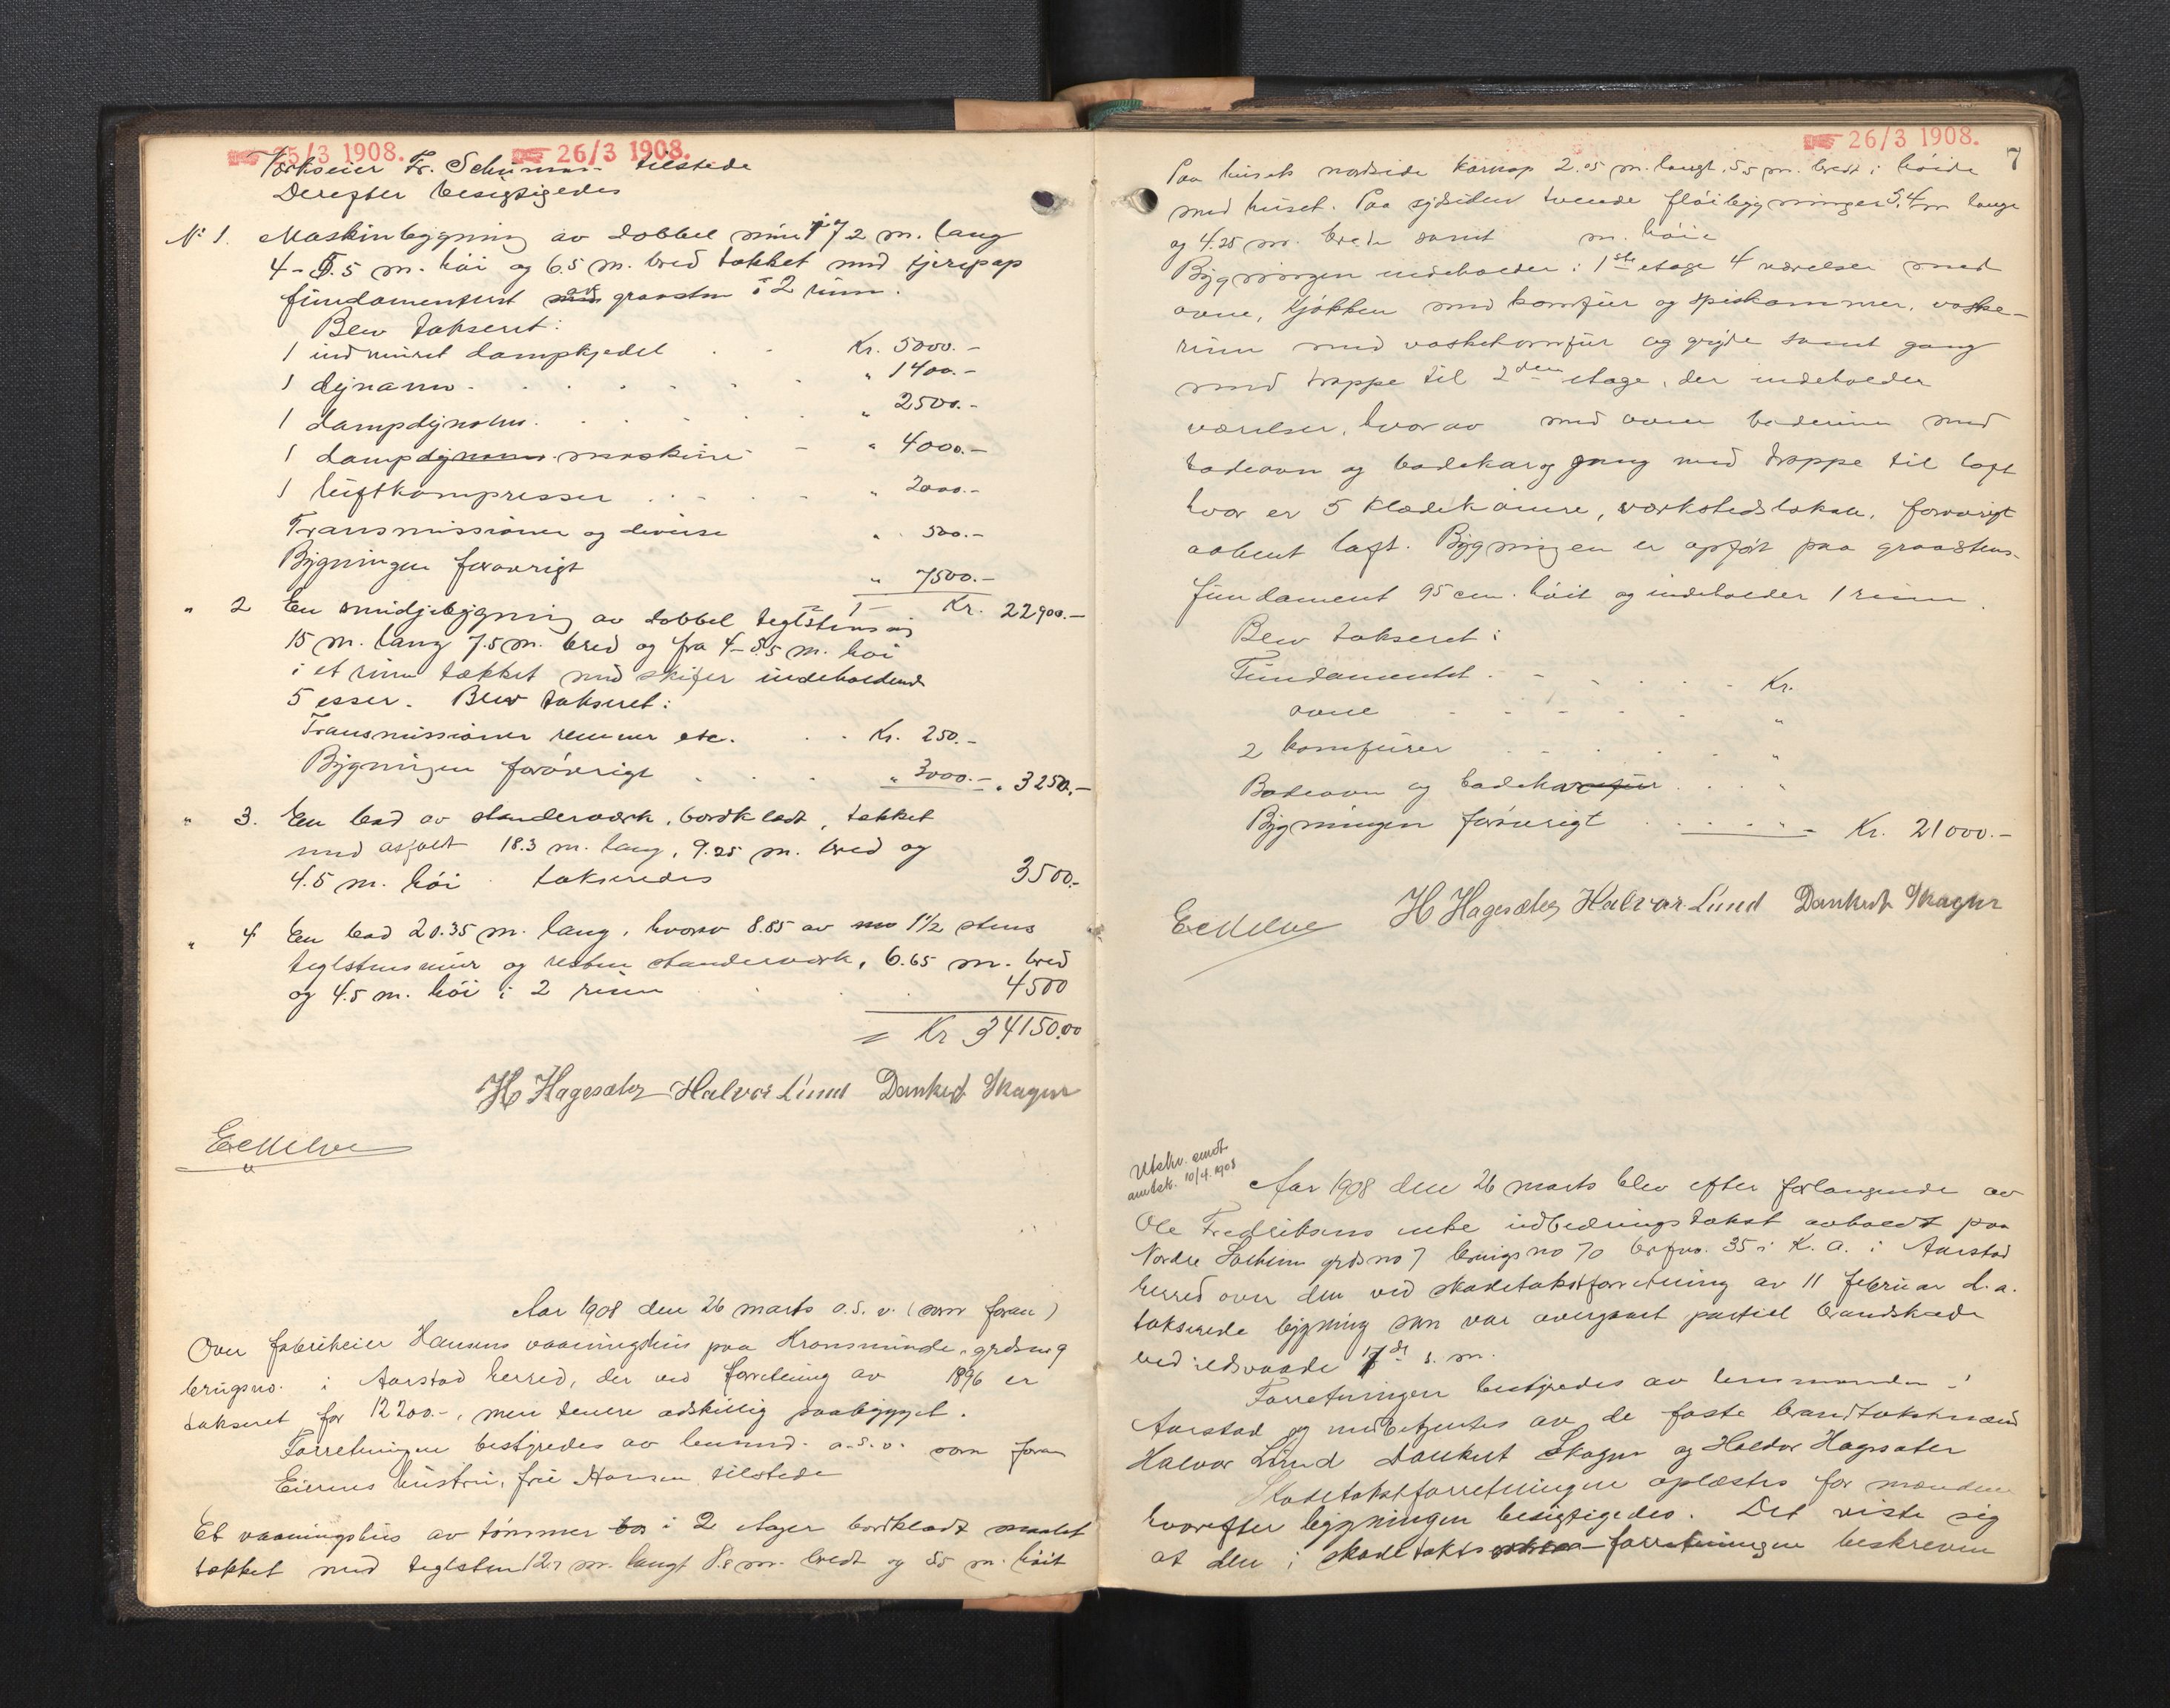 25/3 1908. 26/3 1908.
Verkseier Fr. tilstede
Derefter besigtigedes
No 1. Maskinbygning av dobbel mur 17.2 m. lang
4-5.5 m. høi og 6.5 m. bred tækket med tjerepap
fundamentert av graasten i 2 rum.
Blev takseret:
1 indmuret dampkjedel . . Kr. 5000.-
1 dynamo . . . . . " 1400.-
1 dampdynamo . . . . " 2500.-
1 dampdynamo maskine - - " 4000.-
1 luftkompressor . . . . " 2000.-
Transmissioner og diverse " 500.-
Bygningen forøvrigt " 7500.-
Kr. 22900.-
" 2 En smidjebygning av dobbel teglstensmur
15 m. lang 7.5 m. bred og fra 4-5.5 m. høi
i et rum tækket med skifer indeholdende
5 esser. Blev takseret:
Transmissioner remmer etc. . . Kr. 250.-
Bygningen forøvrigt . . . " 3000.- " 3250.-
" 3. En bod av standerværk, bordklædt, tækket
med asfalt 18.3 m. lang, 9.25 m. bred og
4.5 m. høi takseredes 3500.-
" 4 En bod 20.35 m. lang, hvorav 8.85 av 1½ stens
teglstensmur og resten standerværk, 6.65 m. bred
og 4.5 m. høi i 2 rum . . 4500
= Kr 34150.00
H Hagesæter Halvor Lund Dankert Skagen
Aar 1908 den 26 marts o.s.v. (som foran)
Over fabrikeier Hansens vaaningshus paa Kronsminde, grdsno 9
brugsno. i Aarstad herred, der ved forretning av 1896 er
takseret for 12200.-, men senere adskillig paabygget.
Forretningen bestyredes av lensmd. o.s.v. som foran
Eierens hustru, fru Hansen tilstede
Et vaaningshus av tømmer i 2 etager bordklædt malet
tækket med teglsten 12.7 m. langt 8.8 m. bredt og m. høit
26/3 1908.
7
Paa husets nordside karnap 2.05 m. langt, 5.5 m. bredt i høide
med huset. Paa sydsiden tvende fløibygninger 3.4 m lange
og 4.25 m. brede samt m. høie
Bygningen indeholder i 1ste etage 4 værelser med
ovne, kjøkken med komfur og spiskammer, vaske-
rum med vaskekomfur og gryte samt gang
med trappe til 2den etage, der indeholder
værelser, hvorav med ovne baderum med
badeovn og badekar og gang med trappe til loft
hvor er 5 klædekamre, værkstedslokale, forøvrigt
aabent loft. Bygningen er opført paa graastens-
fundament 95 cm. høit og indeholder 1 rum.
Blev takseret:
Fundamentet . - . . . - Kr.
ovne . . . . . "
2 komfurer . . . . "
Badeovn og badekar . . . "
Bygningen forøvrigt . . . . . Kr. 21000.-
H Hagesæter Halvor Lund Dankert Skagen
Utskr. sendt
amtsk. 10/4. 1908
Aar 1908 den 26 marts blev efter forlangende av
Ole Fredriksens enke utbedringstakst avholdt paa
Nordre Solheim grdsno 7 brugsno 70 brfno. 35 i K. a. i Aarstad
herred over den ved skadetakstforretning av 11 februar d.a.
takserede bygning som var overgaaet partiel brandskade
ved ildsvaade 7de s. m.
Forretningen bestyredes av lensmanden i
Aarstad og medbetjentes av de faste brandtakstmænd
Halvor Lund Dankert Skagen og Haldor Hagesæter
Skadetakstforretningen oplæstes for mændene
hvorefter bygningen besigtigedes. Det viste sig
at den i skadetakstforretningen beskrevne